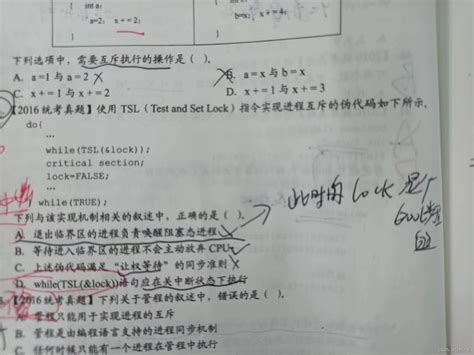 int a;
a=2; x+=2;
b=x; x+=4;
下列选项中，需要互斥执行的操作是（ ）。
A. a=1与a=2
B. a=x与b=x
C. x+=1与x+=2
D. x+=1与x+=3
【2016统考真题】使用TSL（Test and Set Lock）指令实现进程互斥的伪代码如下所示。
do{
…
while(TSL(&lock));
critical section;
lock=FALSE;
…
while(TRUE);
下列与该实现机制相关的叙述中，正确的是（ ）。
此时的 lock 是个
bool类型
A. 退出临界区的进程负责唤醒阻塞态进程
B. 等待进入临界区的进程不会主动放弃CPU
C. 上述伪代码满足“让权等待”的同步准则
D. while(TSL(&lock))语句应在关中断状态下执行
【2016统考真题】下列关于管程的叙述中，错误的是（ ）。
A. 管程只能用于实现进程的互斥
B. 管程是由编程语言支持的进程同步机制
C. 任何时候只能有一个进程在管程中执行